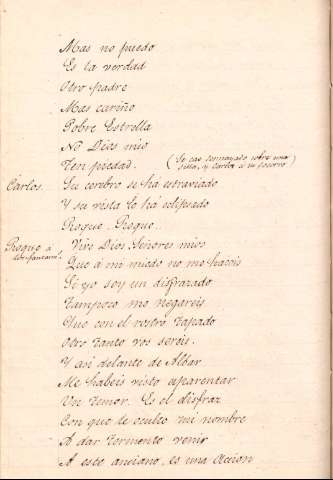 Mas no puedo
Es la verdad
Otro padre
Mas cariño
Pobre Estrella
No Dios mio
Ten piedad. (Se cae desmayado sobre una
silla, y Carlos a su socorro)
Carlos. Su cerebro se há estraviado
Y su vista le ha eclipsado
Roque. Roque.
Roque á Vive Dios, Señores mios
los fantasm.
Que á mi miedo no me haceis
Si yo soy un disfrazado
Tampoco me negareis
Que con el rostro tapado
Otro tanto vos sereis.
Y asi delante de Albar
Me habeis visto aparentar
Un temor. Es el disfraz
Con que le oculto mi nombre
A dar tormento venir
A este anciano, es una accion